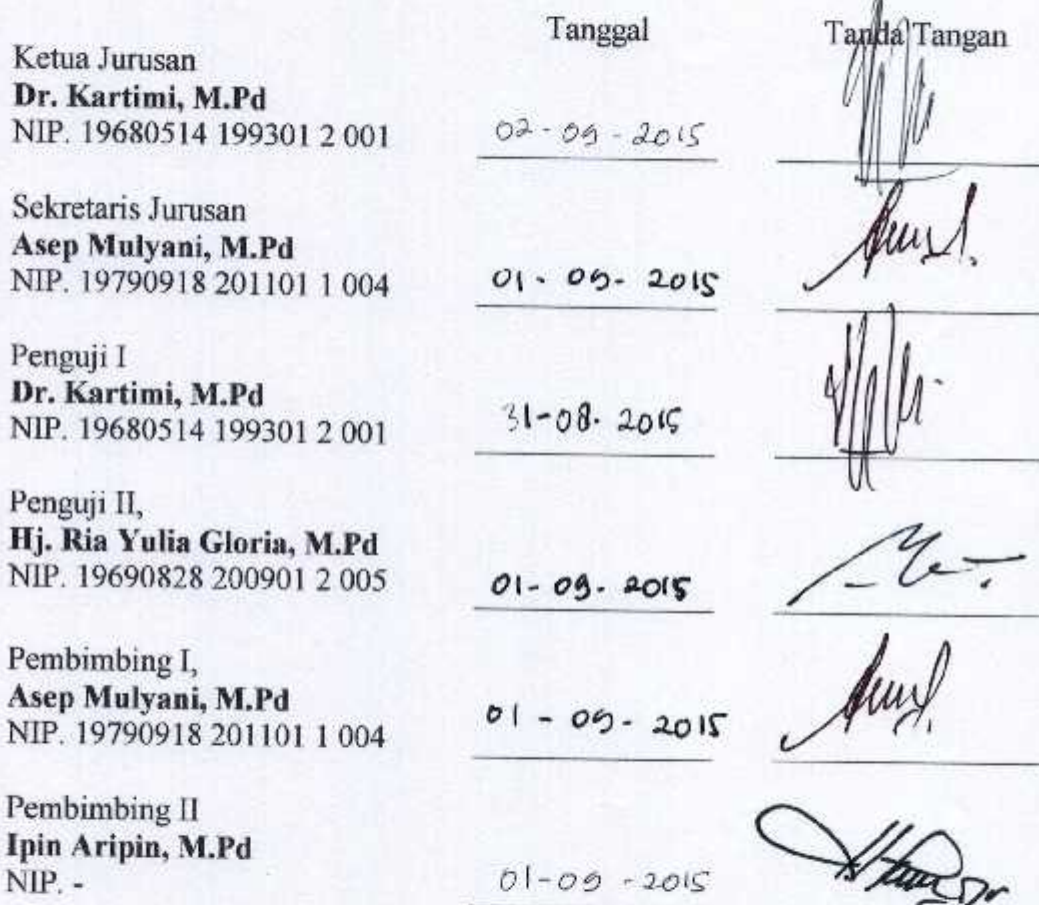 Tanggal Tanda Tangan
Ketua Jurusan
Dr. Kartimi, M.Pd
NIP. 19680514 199301 2 001 02-09-2015
Sekretaris Jurusan
Asep Mulyani, M.Pd
NIP. 19790918 201101 1 004 01-09-2015
Penguji I
Dr. Kartimi, M.Pd
NIP. 19680514 199301 2 001 31-08-2015
Penguji II,
Hj. Ria Yulia Gloria, M.Pd
NIP. 19690828 200901 2 005 01-09-2015
Pembimbing I,
Asep Mulyani, M.Pd
NIP. 19790918 201101 1 004 01-09-2015
Pembimbing II
Ipin Aripin, M.Pd
NIP. - 01-09-2015